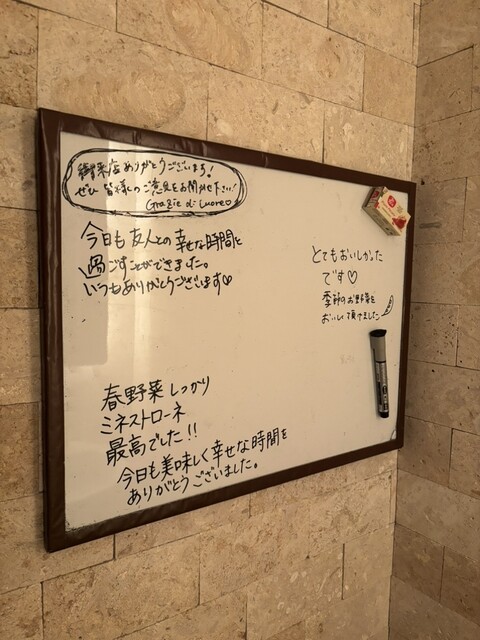 御来店ありがとうございます!
ぜひ皆様のご意見をお聞かせ下さい!
Grazie di Cuore♡
今日も友人との幸せな時間を
過ごすことができました。
いつもありがとうございます♡
とてもおいしかった
です♡
季節のお野菜を
おいしく頂けました
春野菜しっかり
ミネストローネ
最高でした!!
今日も美味しく幸せな時間を
ありがとうございました。